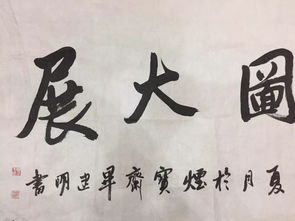 圖大展
夏月於煙寶齋畢建明書